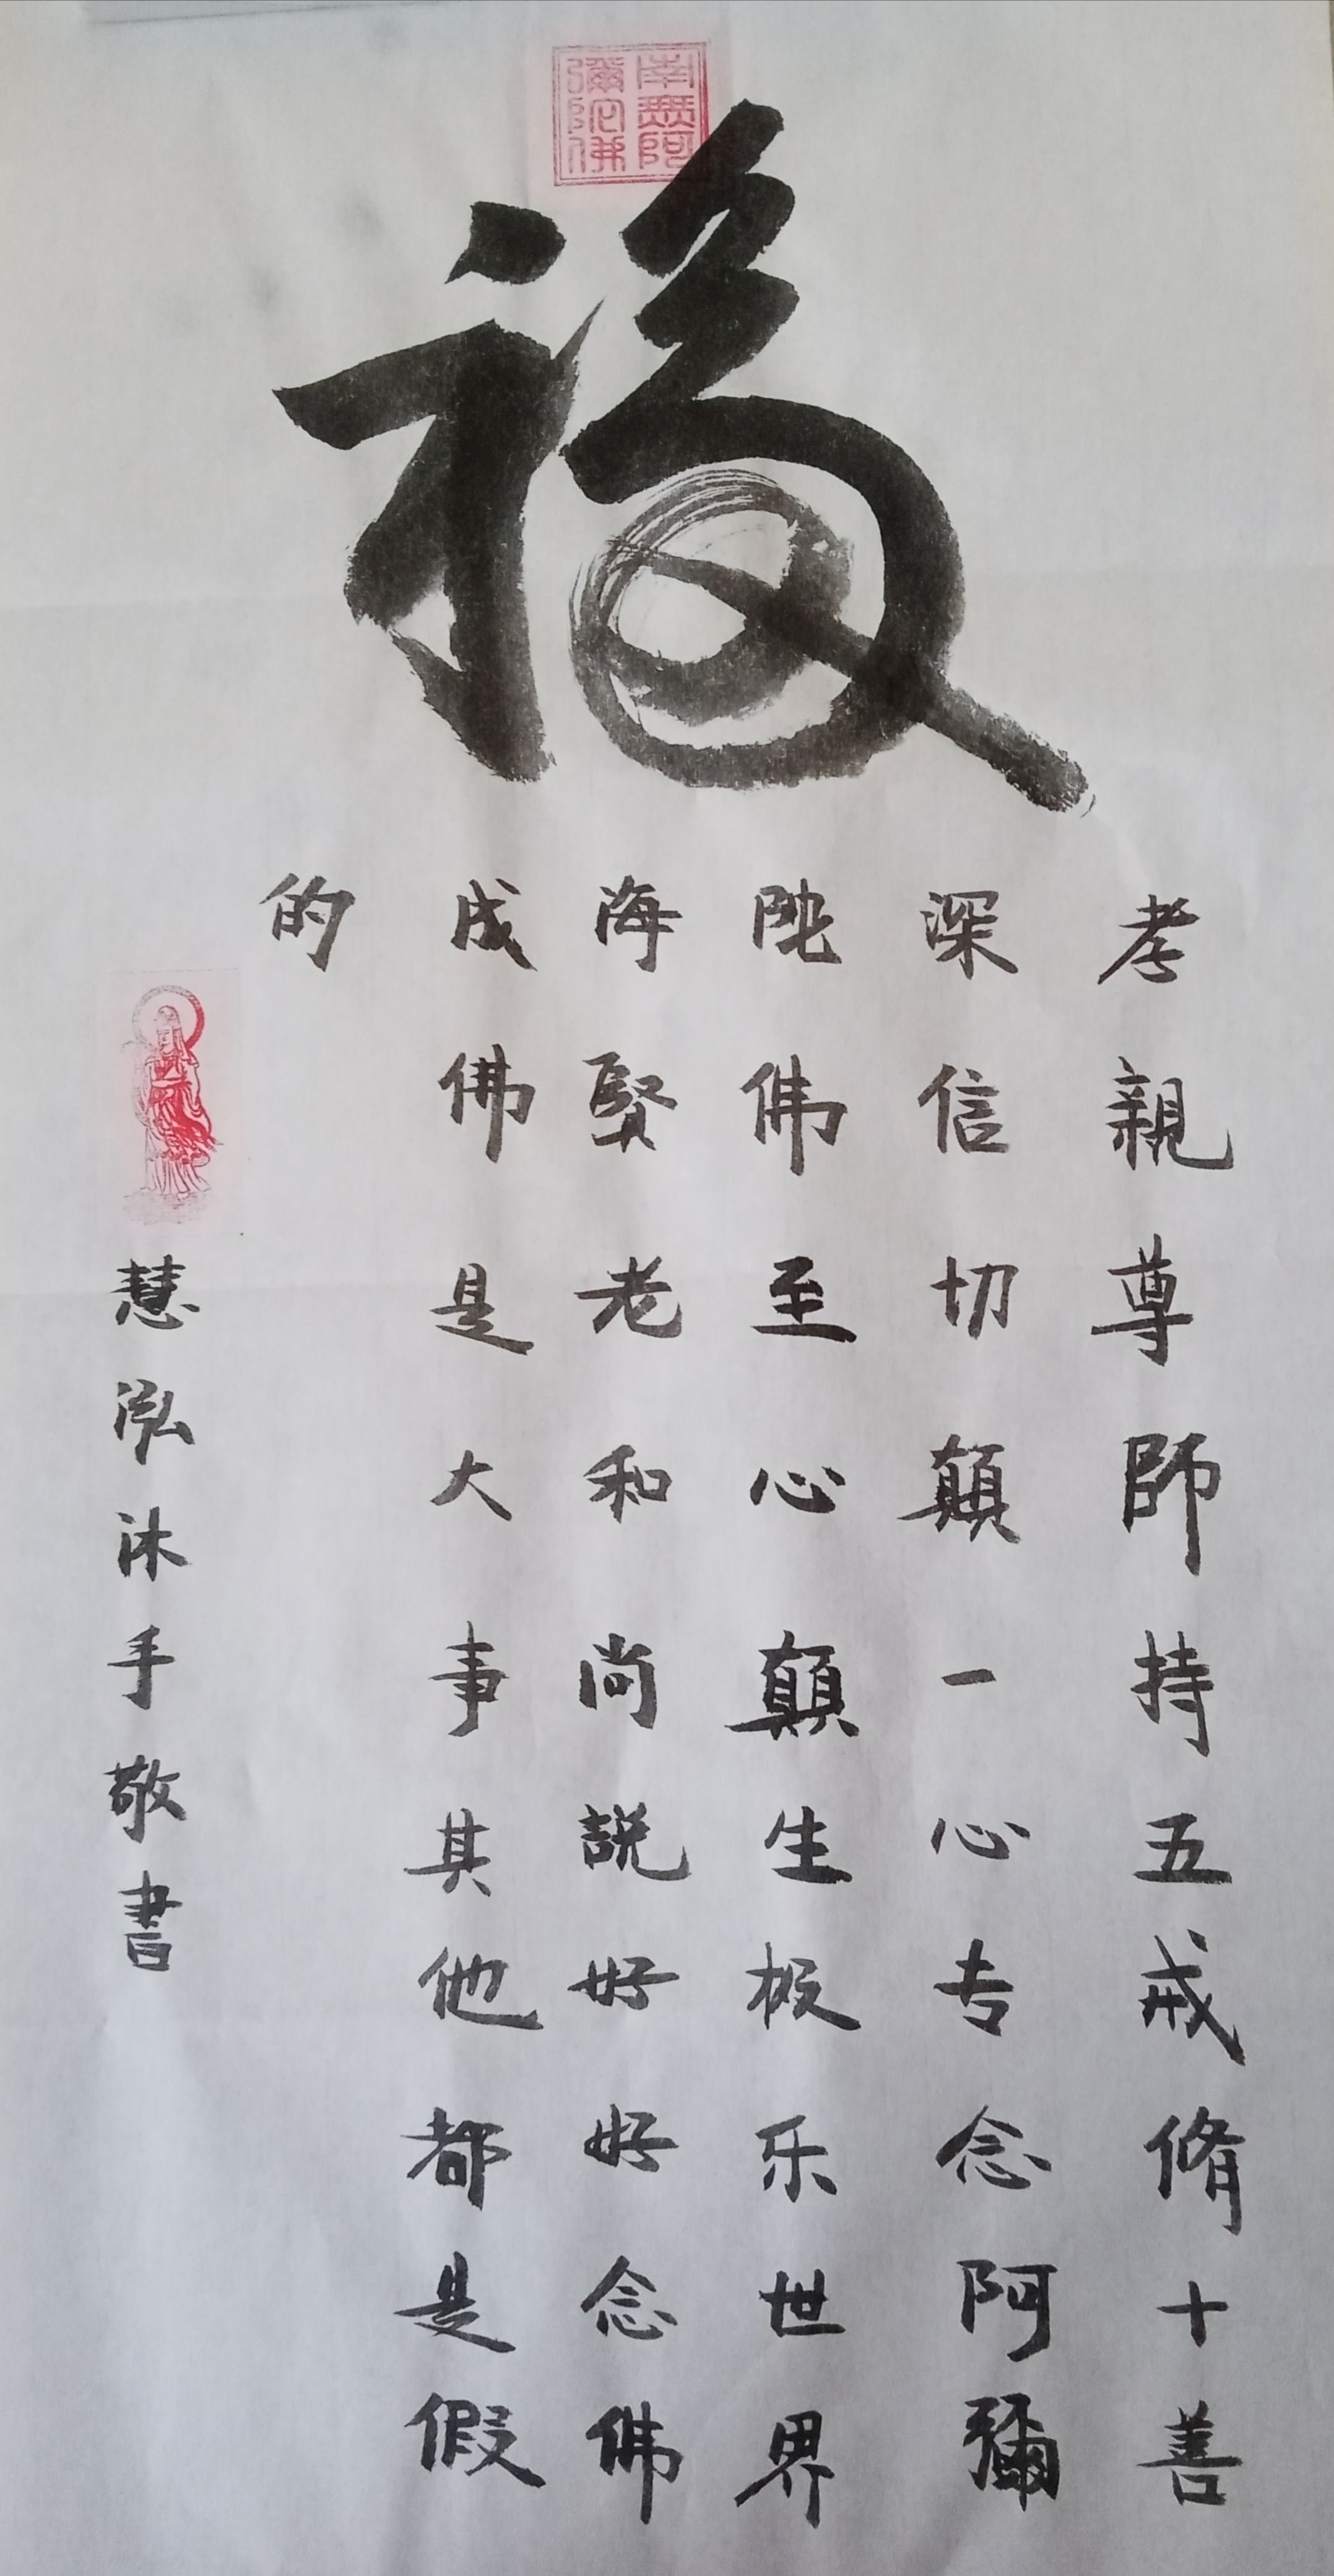 南無阿
彌陀佛
福
孝親尊師持五戒脩十善
深信切顛一心专念阿彌
陁佛至心顛生极乐世界
海賢老和尚説好好念佛
成佛是大事其他都是假
的
慧泓沐手敬書